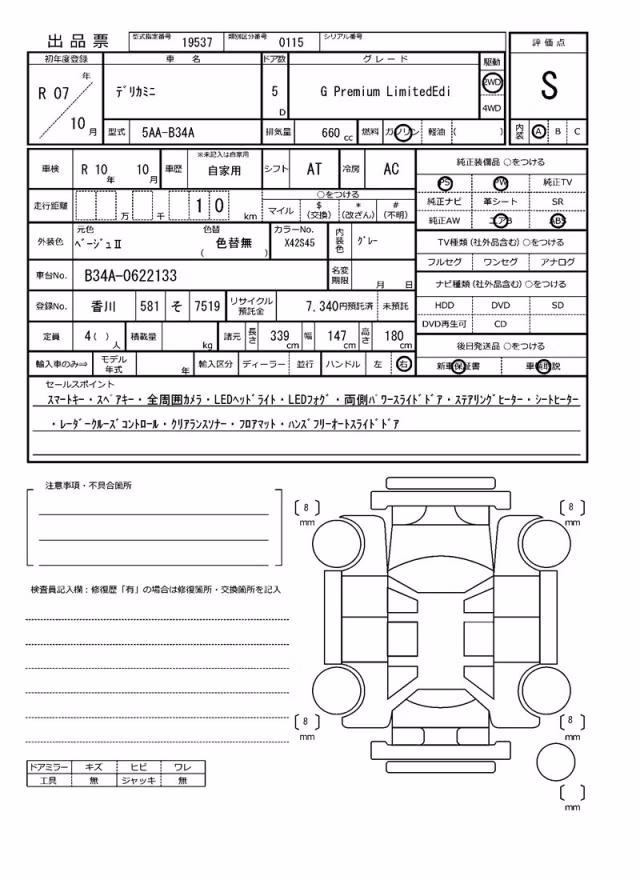 出品票 型式指定番号 19537 類別区分番号 0115 シリアル番号
初年度登録 車名 ドア数 グレード 駆動 評価点
R 07 年 10 月 ﾃﾞﾘｶﾐﾆ 5 D G Premium LimitedEdi 2WD 4WD S
型式 5AA-B34A 排気量 660 cc 燃料 ガソリン 軽油 ( ) 内装 A B C
車検 R 10 年 10 月 車歴 ※未記入は自家用 自家用 シフト AT 冷房 AC 純正装備品 ○をつける
PS PW 純正TV
走行距離 万 千 1 0 km ○をつける 純正ナビ 革シート SR
マイル $ (交換) * (改ざん) # (不明) 純正AW エアB ABS
外装色 元色 ﾍﾞｰｼﾞｭⅡ 色替 色替無 ( ) カラーNo. X42S45 内装色 ｸﾞﾚｰ TV種類 (社外品含む) ○をつける
フルセグ ワンセグ アナログ
車台No. B34A-0622133 名変期限 月 日 ナビ種類 (社外品含む) ○をつける
登録No. 香川 581 そ 7519 リサイクル預託金 7,340円預託済 未預託 HDD DVD SD
DVD再生可 CD
定員 4 ( ) 人 積載量 kg 諸元 長さ 339 cm 幅 147 cm 高さ 180 cm 後日発送品 ○をつける
輸入車のみ⇒ モデル年式 年 輸入区分 ディーラー 並行 ハンドル 左 右 新車保証書 車輌取説
セールスポイント
ｽﾏｰﾄｷｰ・ｽﾍﾟｱｷｰ・全周囲ｶﾒﾗ・LEDﾍｯﾄﾞﾗｲﾄ・LEDﾌｫｸﾞ・両側ﾊﾟﾜｰｽﾗｲﾄﾞﾄﾞｱ・ｽﾃｱﾘﾝｸﾞﾋｰﾀｰ・ｼｰﾄﾋｰﾀｰ
・ﾚｰﾀﾞｰｸﾙｰｽﾞｺﾝﾄﾛｰﾙ・ｸﾘｱﾗﾝｽｿﾅｰ・ﾌﾛｱﾏｯﾄ・ﾊﾝｽﾞﾌﾘｰｵｰﾄｽﾗｲﾄﾞﾄﾞｱ
注意事項・不具合箇所
[ 8 ] mm [ 8 ] mm
検査員記入欄：修復歴「有」の場合は修復箇所・交換箇所を記入
[ 8 ] mm [ 8 ] mm
ドアミラー キズ ヒビ ワレ
工具 無 ジャッキ 無
[ ] mm